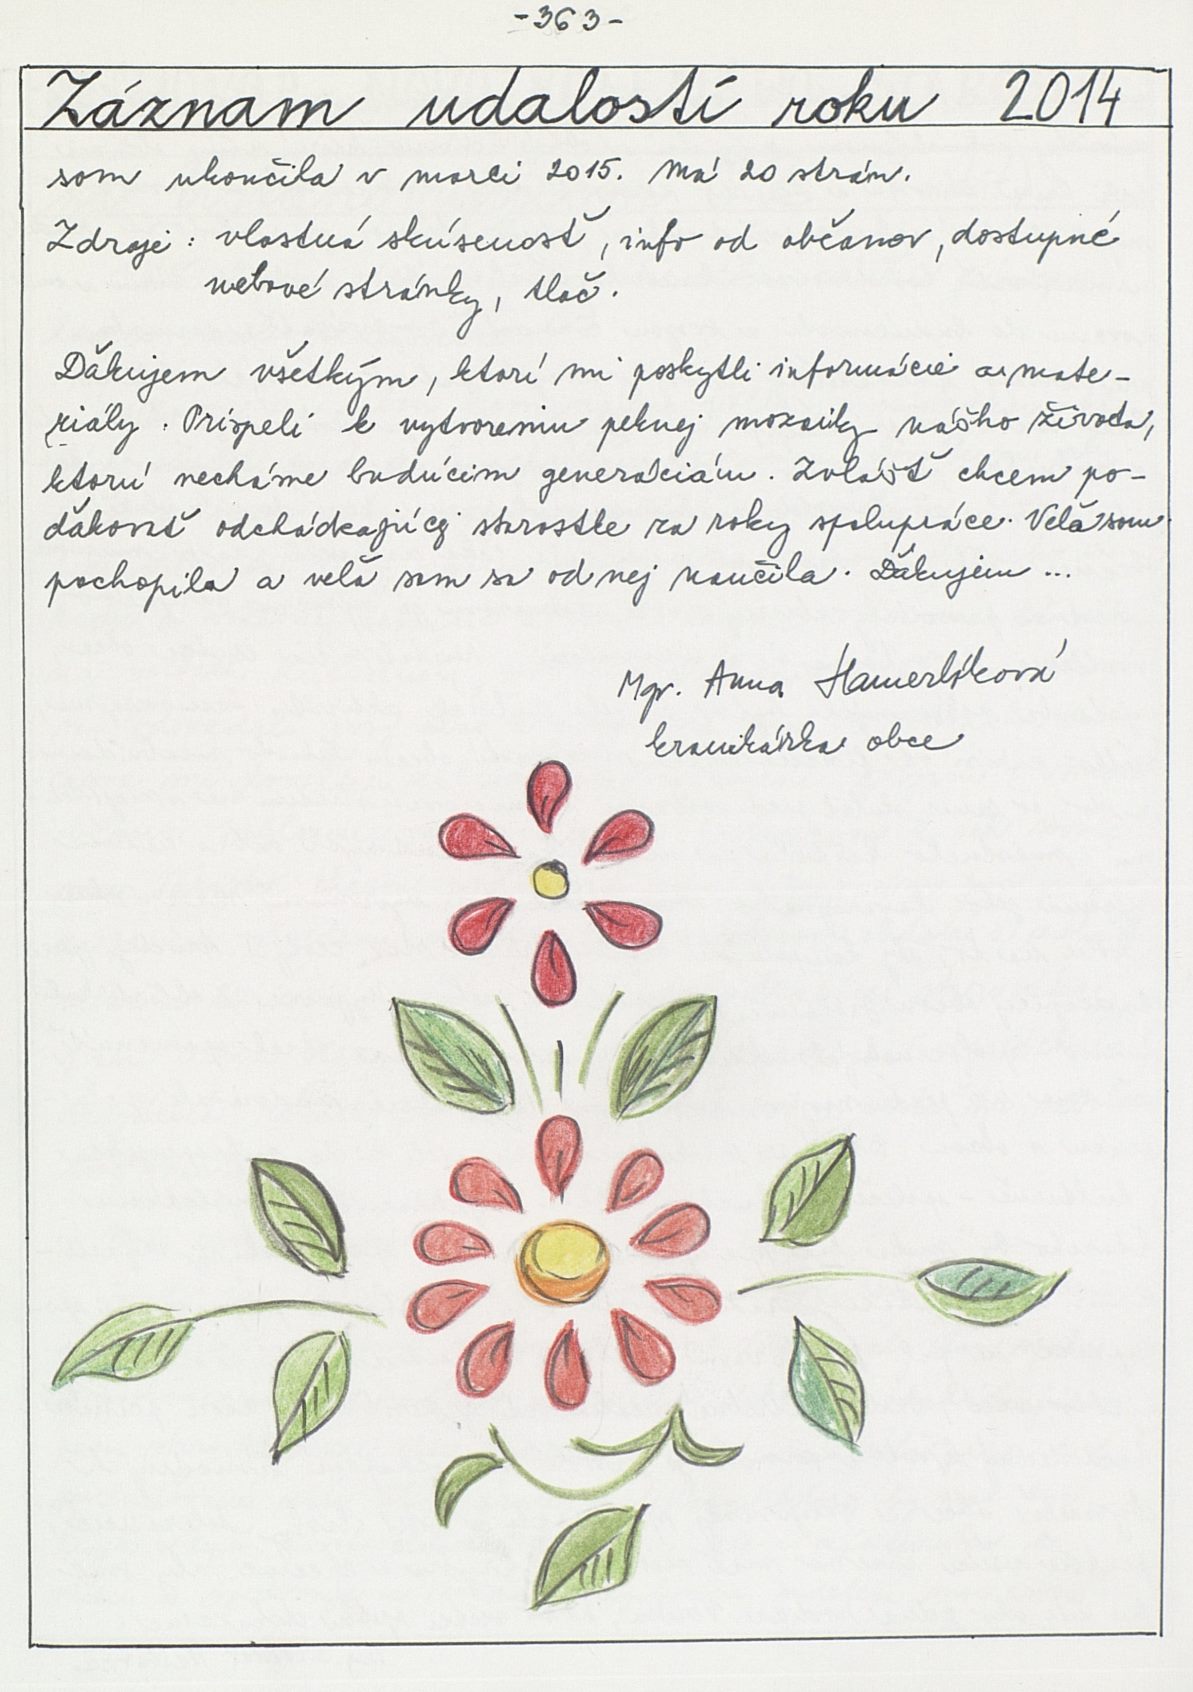 -363-
Záznam udalostí roku 2014
som ukončila v marci 2015. Má 20 strán.
Zdroje: vlastná skúsenosť, info od občanov, dostupné
webové stránky, tlač.
Ďakujem všetkým, ktorí mi poskytli informácie a mate-
riály. Prispeli k vytvoreniu peknej mozaiky nášho života,
ktorú necháme budúcim generáciám. Zvlášť chcem po-
ďakovať odchádzajúcej starostke za roky spolupráce. Veľa som
pochopila a veľa som sa od nej naučila. Ďakujem ...
Mgr. Anna Hamerlíková
kronikárka obce